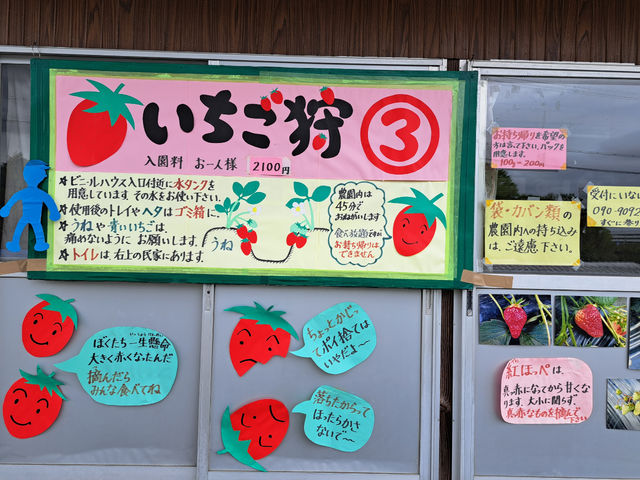 いちご狩 ③
入園料 お一人様 2100円
☆ビニールハウス入口付近に水タンクを
用意しています。その水をお使い下さい。
☆使用後のトレイやヘタはゴミ箱に。
☆うねや青いいちごは、
痛めないように お願いします。
☆トイレは、右上の民家にあります。
うね
農園内は
45分で
おねがいします
食べ放題ですが
お持ち帰りは
できません
お持ち帰りを希望の
方は言って下さい。パックを
用意します。
100g-200円
袋・カバン類の
農園内への持ち込み
は、ご遠慮下さい。
受付にいない
090-9092
すぐに参り
ぼくたち一生懸命
大きく赤くなったんだ
摘んだら
みんな食べてね
ちょっとかじっ
てポイ捨ては
いやだよ〜
落ちたからって
ほったらかさ
ないで〜
紅ほっぺは、
真っ赤になってから甘くな
ります。大小に関らず、
真っ赤なものを摘んで
下さい